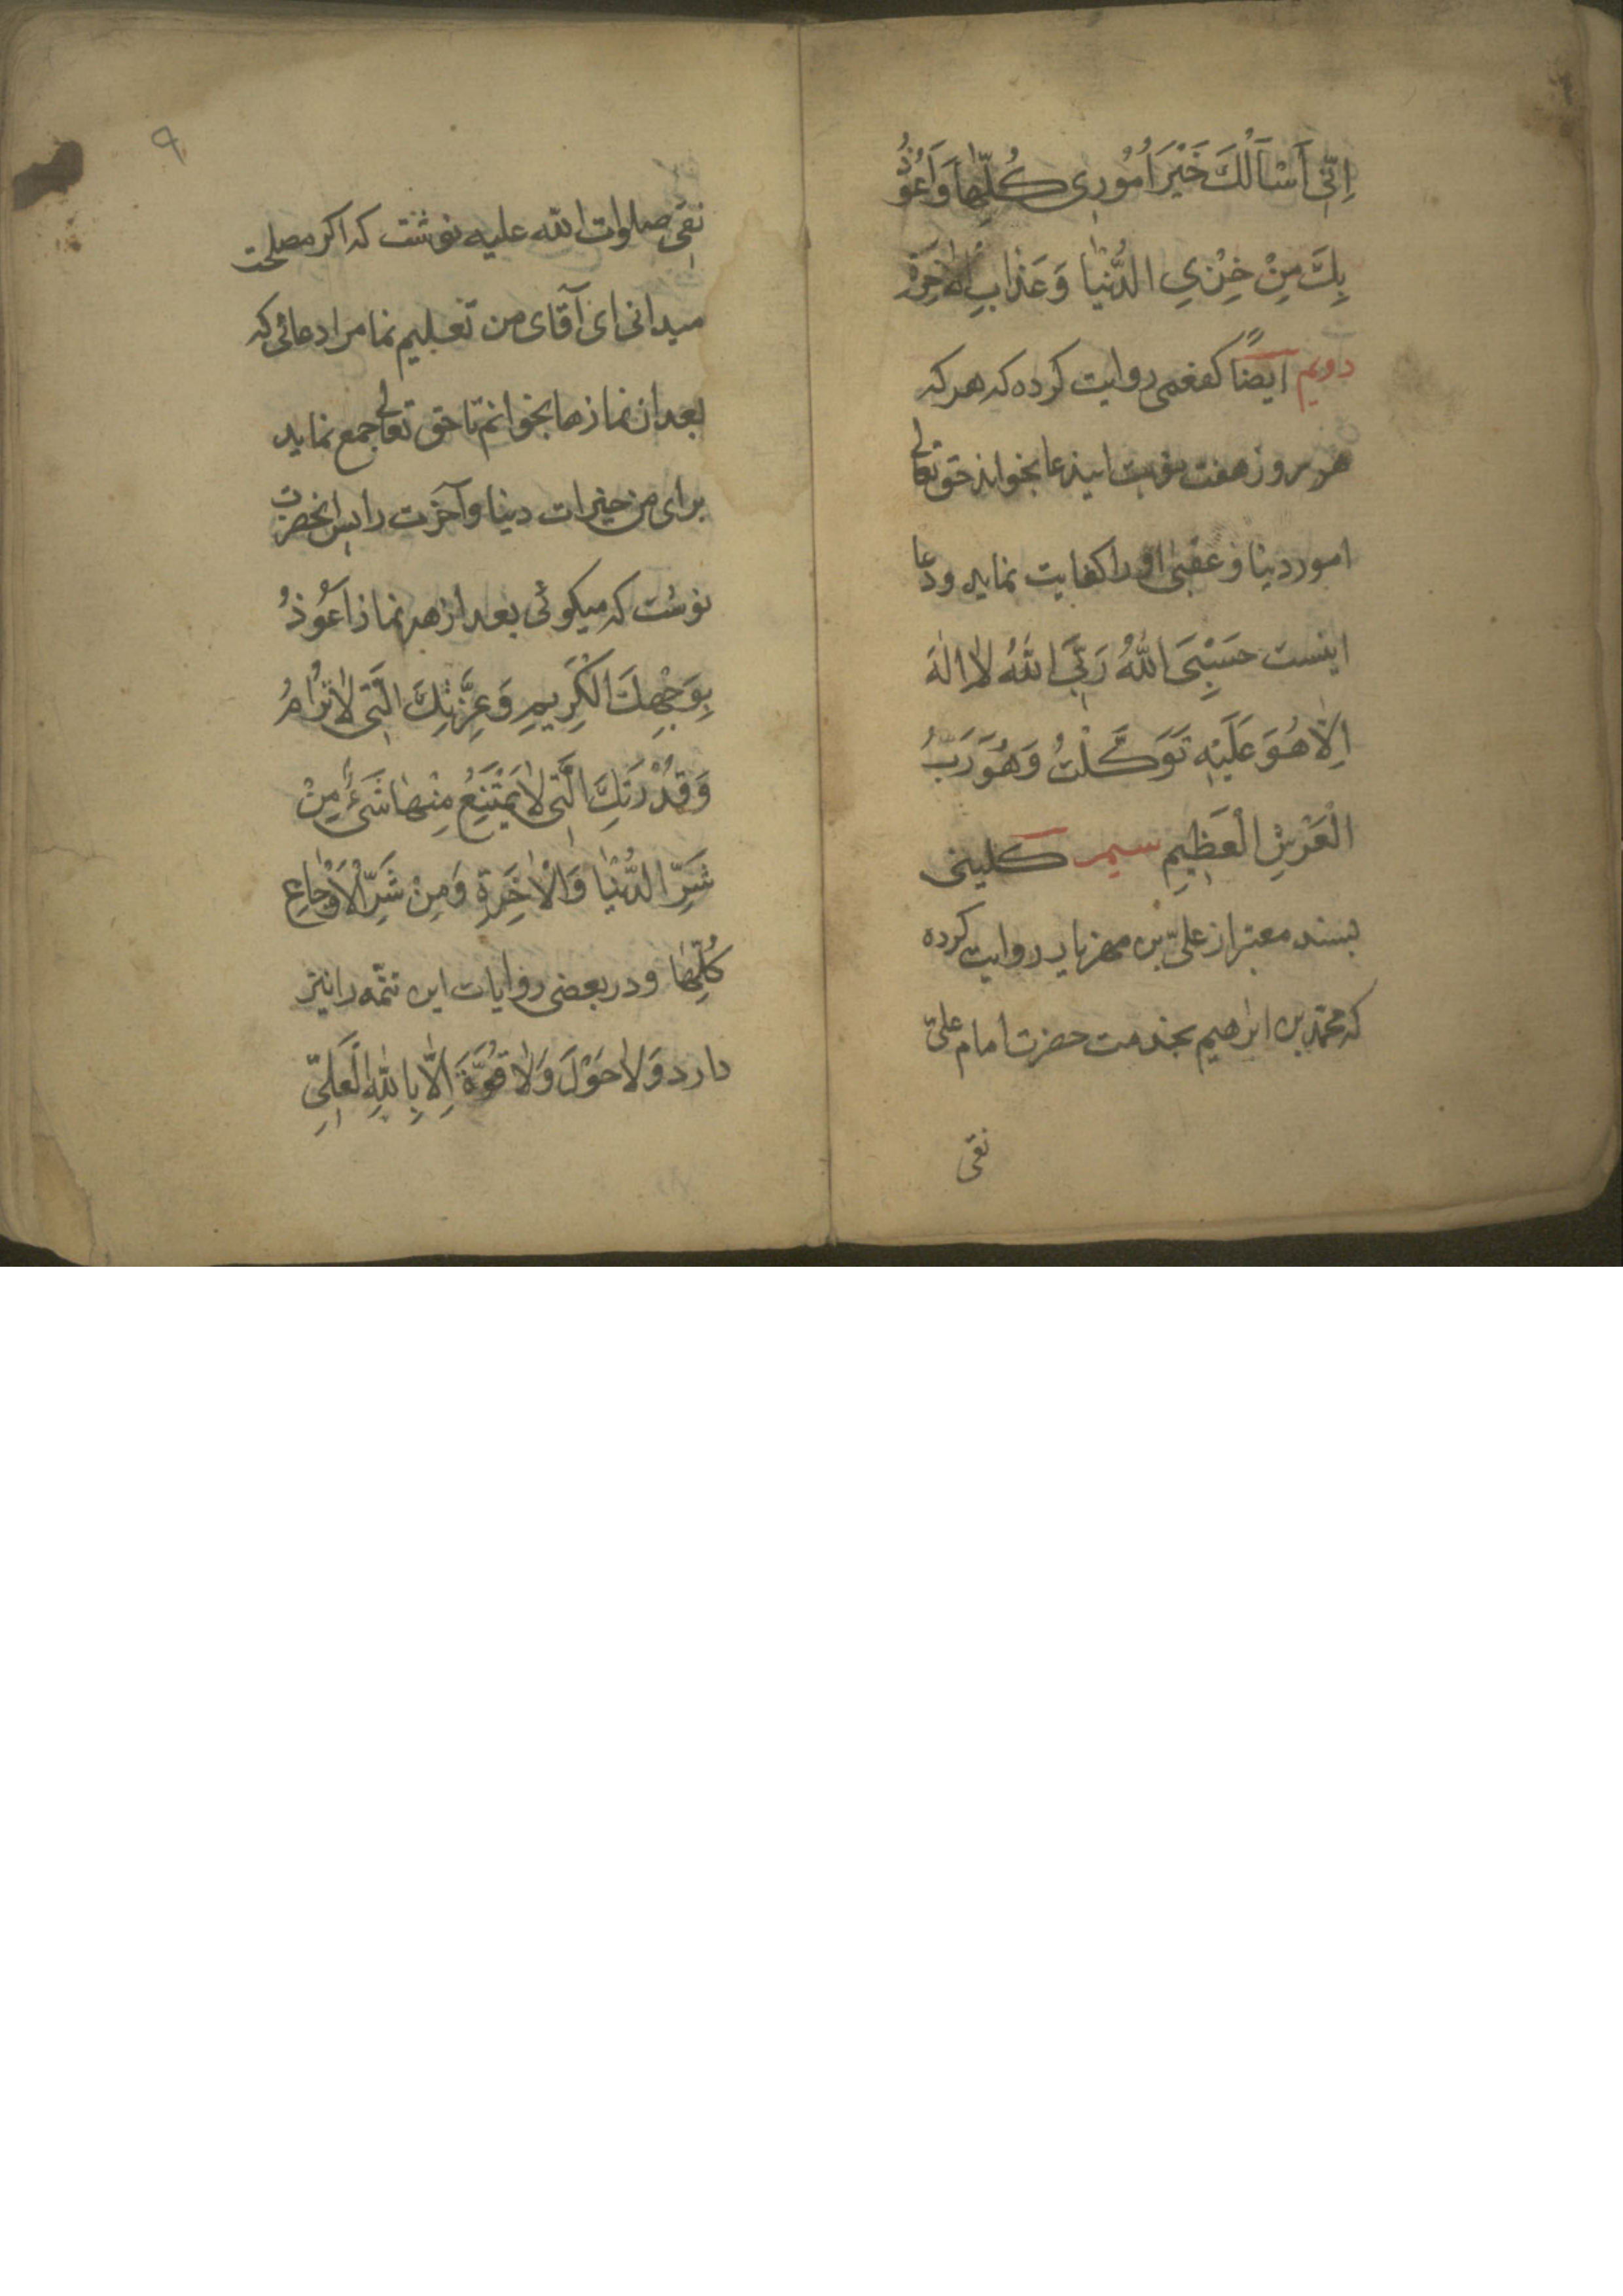 اِنّی اَسْاَلُكَ خَیْرَ اُمُوری كُلِّهٰا وَ اَعُوذُ
بِكَ مِنْ خِزْیِ الدُّنْیٰا وَ عَذٰابِ الْاٰخِرَةِ
دویم ایضاً کفعمی روایت کرده که هر که
هر روز هفت نوبت ایندعا بخواند حق تعالی
امور دنیا و عقبی او را کفایت نماید و دعا
اینست حَسْبِیَ اللّٰهُ رَبِّیَ اللّٰهُ لٰا اِلٰهَ
اِلّٰا هُوَ عَلَیْهِ تَوَكَّلْتُ وَ هُوَ رَبُّ
الْعَرْشِ الْعَظِیمِ سیم کلینی
بسند معتبر از علیّ بن مهزیار روایت کرده
که محمّد بن ابراهیم بخدمت حضرت امام علیّ
نقی
۹
نقی صلوات اللّه علیه نوشت که اکر مصلحت
میدانی ای آقای من تعلیم نما مرا دعائی که
بعد از نمازها بخوانم تا حق تعالی جمع نماید
برای من خیرات دنیا و آخرت را پس انحضرت
نوشت که میکوئی بعد از هر نماز اَعُوذُ
بِوَجْهِكَ الْكَرِیمِ وَ عِزَّتِكَ الَّتی لٰا تُرٰامُ
وَ قُدْرَتِكَ الَّتی لٰا یَمْتَنِعُ مِنْهٰا شَیْءٌ مِنْ
شَرِّ الدُّنْیٰا وَ الْاٰخِرَةِ وَ مِنْ شَرِّ الْاَوْجٰاعِ
كُلِّهٰا و در بعضی روایات این تتمّه را نیز
دارد وَ لٰا حَوْلَ وَ لٰا قُوَّةَ اِلّٰا بِاللّٰهِ الْعَلِیِّ